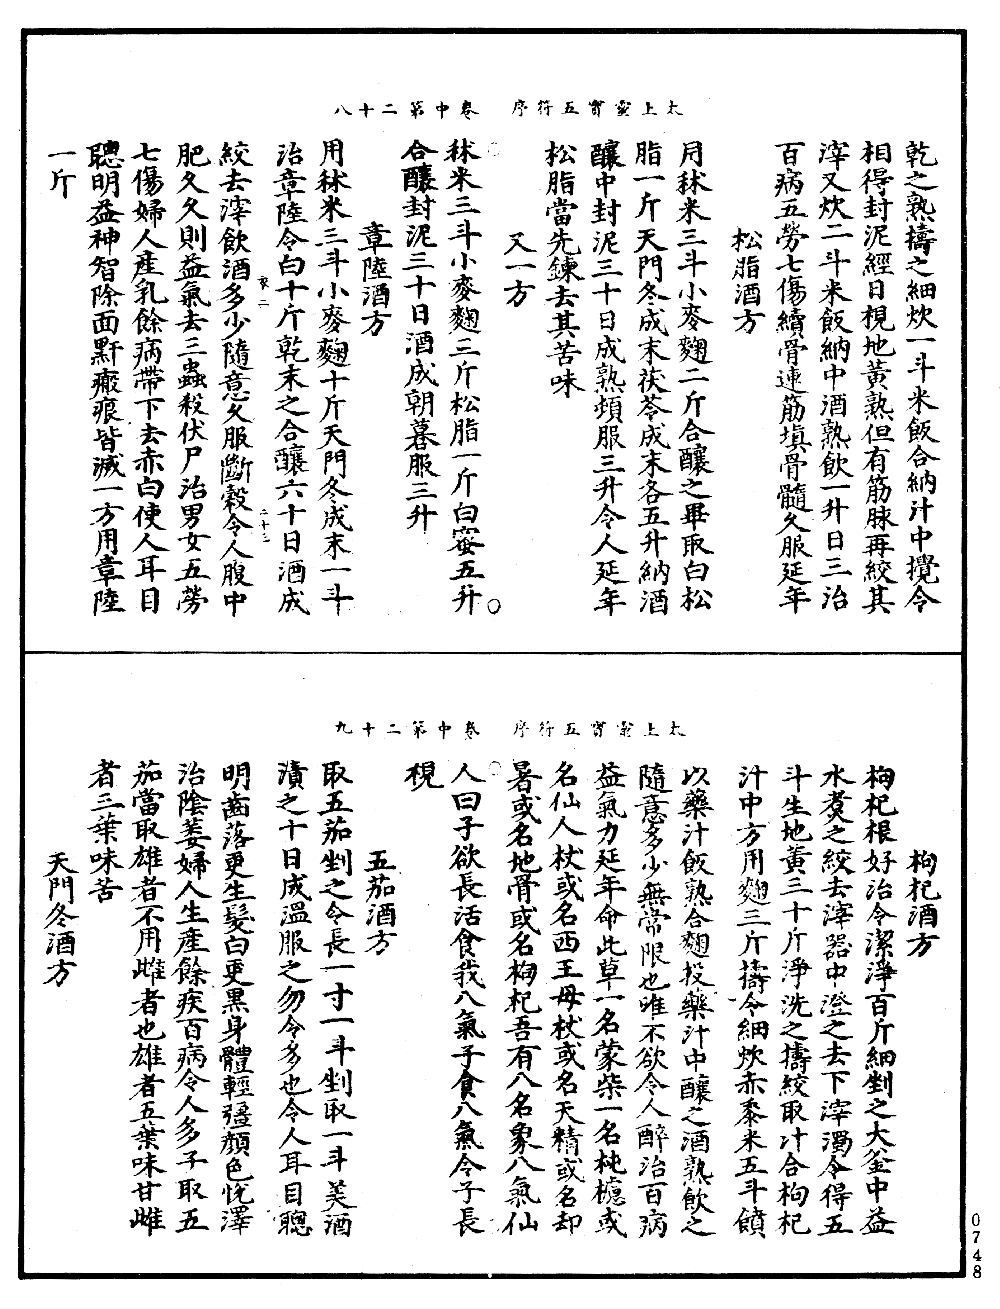 太上靈寶五符序　卷中第二十八
乾之熟擣之細炊一斗米飯合納汁中攪令
相得封泥經日視地黃熟但有筋脉再絞其
滓又炊二斗米飯納中酒熟飲一升日三治
百病五勞七傷續骨連筋填骨髓久服延年
松脂酒方
用秫米三斗小麥麴二斤合釀之畢取白松
脂一斤天門冬成末茯苓成末各五升納酒
釀中封泥三十日成熟頻服三升令人延年
松脂當先鍊去其苦味
又一方
秫米三斗小麥麴三斤松脂一斤白蜜五升
合釀封泥三十日酒成朝暮服三升
章陸酒方
用秫米三斗小麥麴十斤天門冬成末一斗
治章陸令白十斤乾末之合釀六十日酒成
二十三
絞去滓飲酒多少隨意久服斷穀令人腹中
肥久久則益氣去三蟲殺伏尸治男女五勞
七傷婦人產乳餘病帶下去赤白使人耳目
聰明益神智除面䵟瘢痕皆滅一方用章陸
一斤
太上靈寶五符序　卷中第二十九
枸杞酒方
枸杞根好治令潔淨百斤細剉之大釜中益
水煑之絞去滓器中澄之去下滓濁令得五
斗生地黃三十斤淨洗之擣絞取汁合枸杞
汁中方用麴三斤擣令細炊赤黍米五斗饙
以藥汁飯熟合麴投藥汁中釀之酒熟飲之
隨意多少無常限也唯不欲令人醉治百病
益氣力延年命此草一名蒙柴一名杶櫨或
名仙人杖或名西王母杖或名天精或名却
暑或名地骨或名枸杞吾有八名象八氣仙
人曰子欲長活食我八氣子食八氣令子長
視
五茄酒方
取五茄剉之令長一寸一斗剉取一斗美酒
漬之十日成溫服之勿令多也令人耳目聰
明齒落更生髮白更黑身體輕強顏色悅澤
治陰萎婦人生產餘疾百病令人多子取五
茄當取雄者不用雌者也雄者五葉味甘雌
者三葉味苦
天門冬酒方
0748